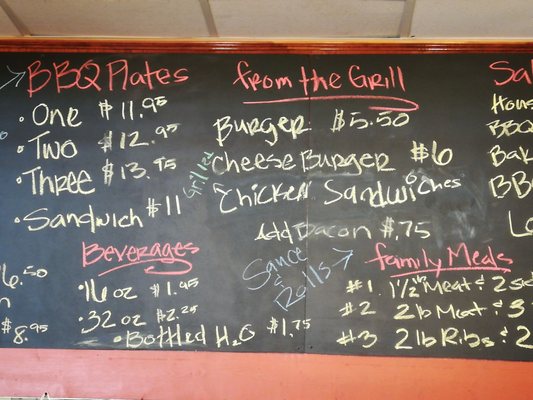 BBQ Plates
· One $11.95
· Two $12.95
· Three $13.95
· Sandwich $11
Beverages
· 16 oz $1.95
· 32 oz $2.25
· Bottled H2O $1.75
6.50
$8.95
from the Grill
Burger $5.50
Cheese Burger $6
Grilled
Chicken Sandwiches
Add Bacon $.75
Sauce & Rolls
family Meals
#1 1 1/2 lb Meat &
#2 2 lb Meat & 3
#3 2 lb Ribs & 2
BBQ